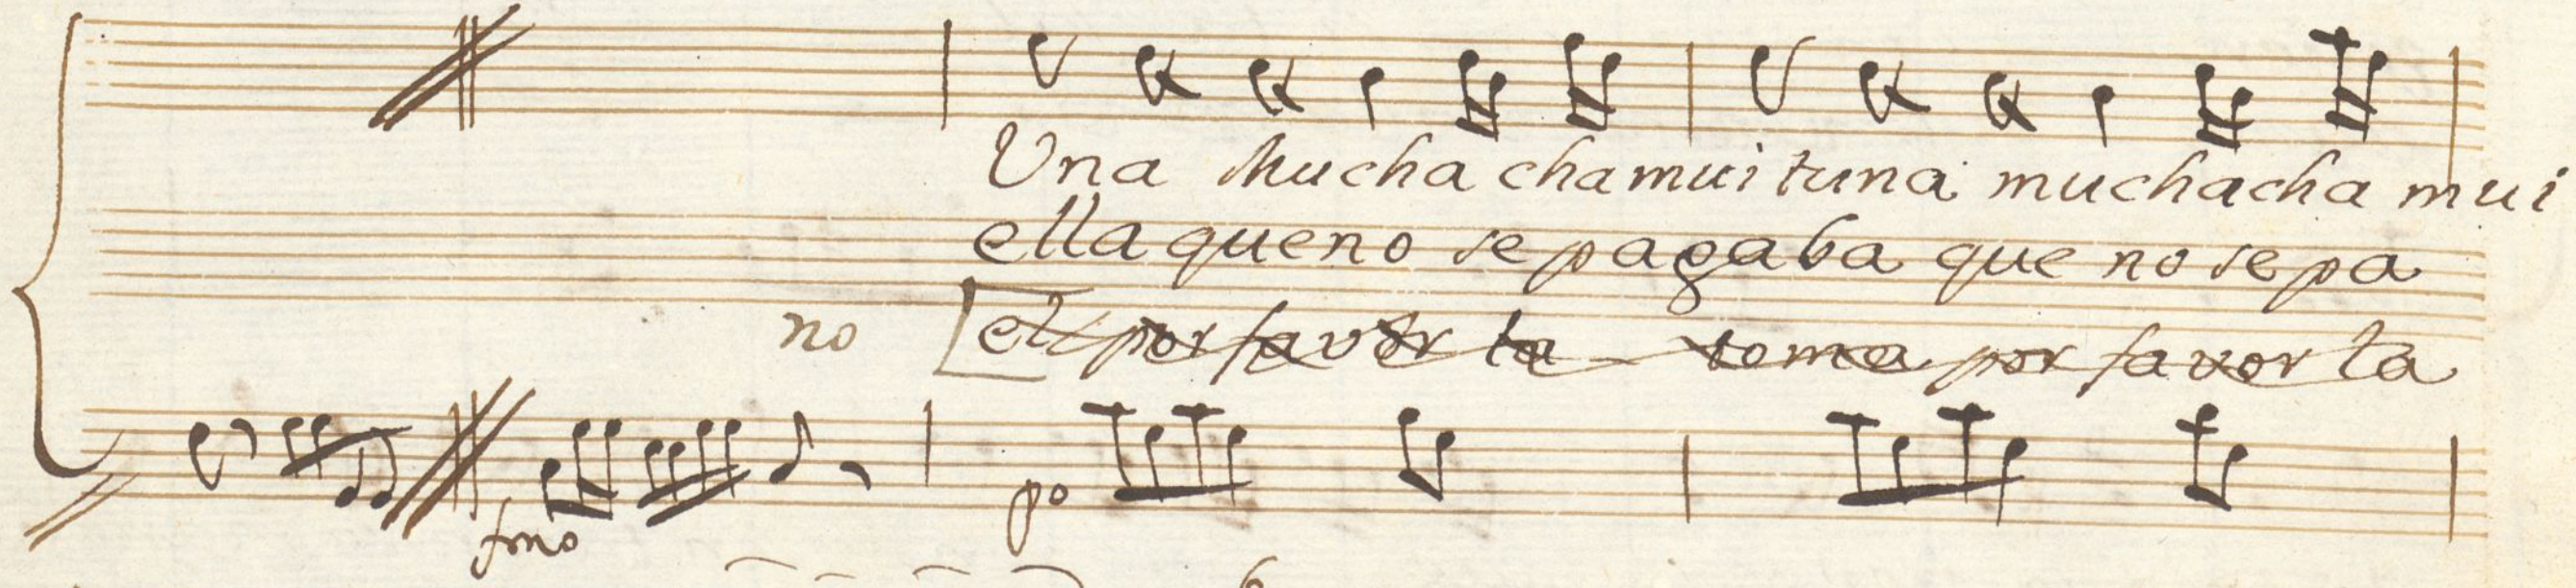 Una Muchacha mui tuna muchacha mui
ella que no se pagaba que no se pa
no el por favor la toma por favor la
fmo po